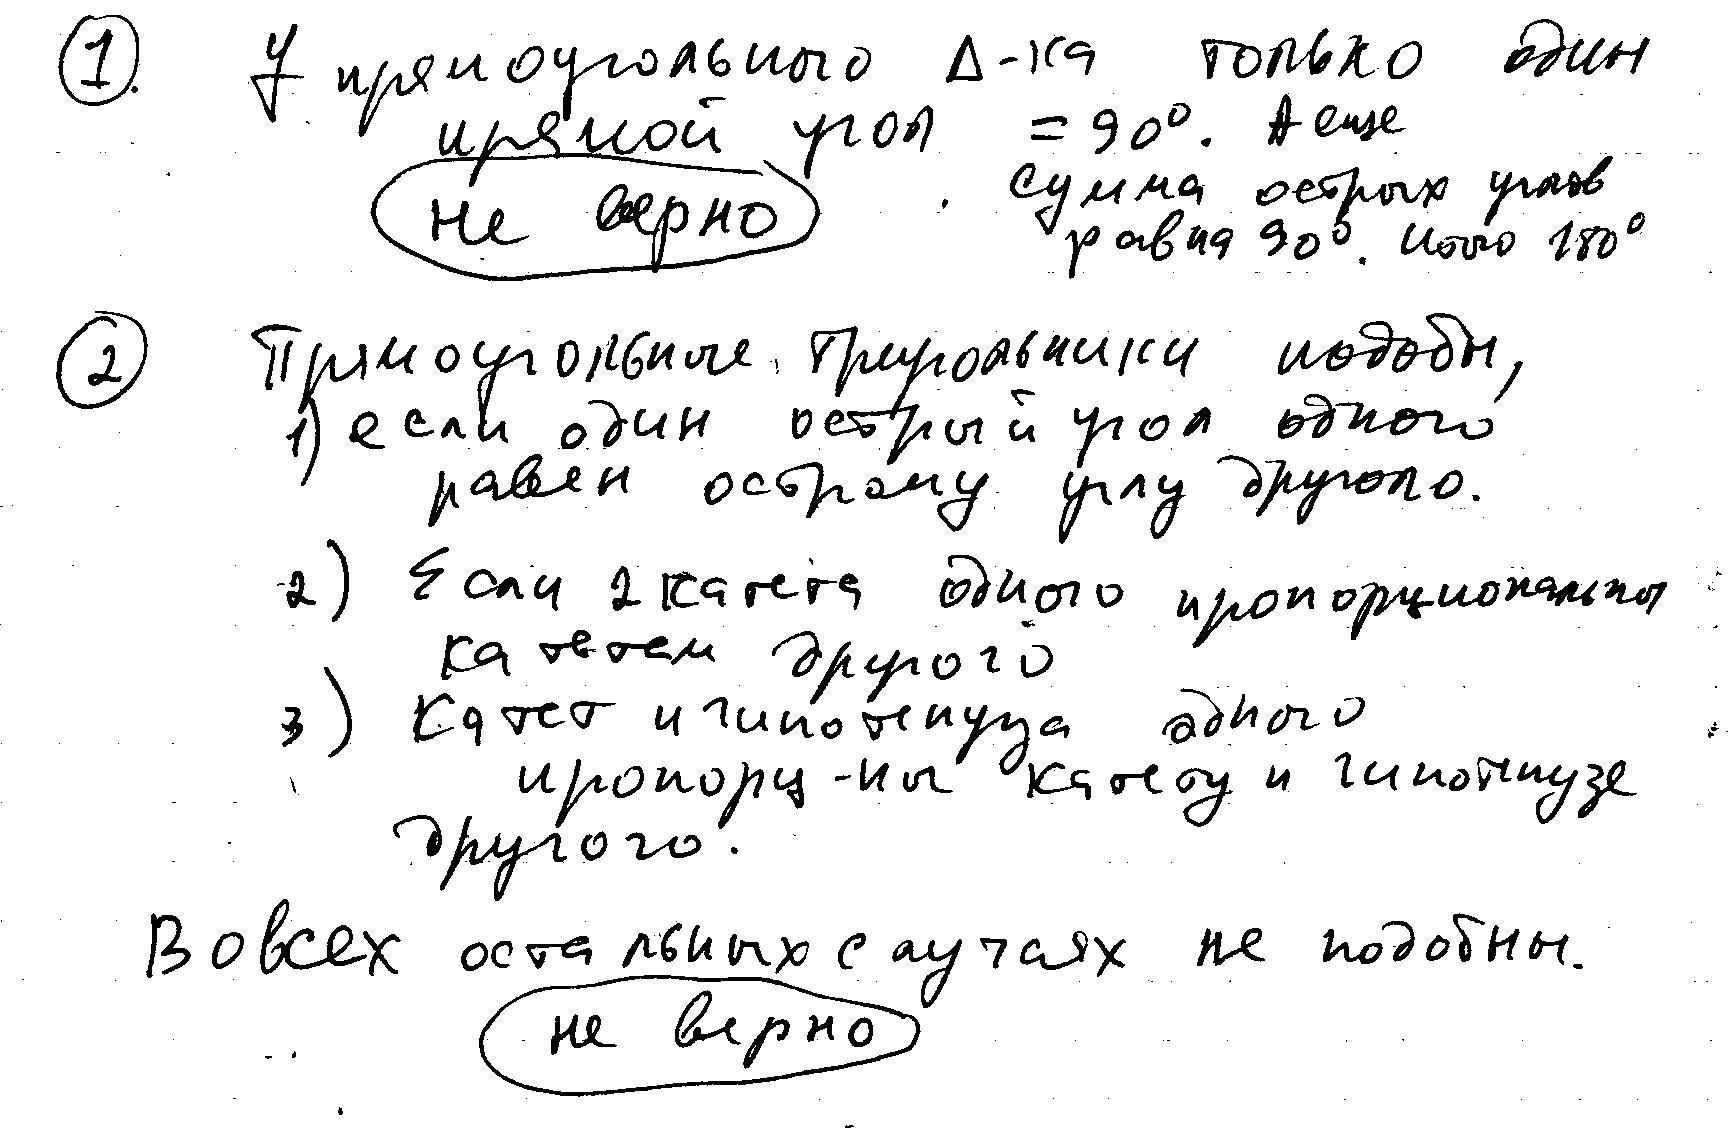 1. У прямоугольного Δ-ка только один
прямой угол = 90°. А еще
не верно
сумма острых углов
равна 90°. Итого 180°
2 Прямоугольные треугольники подобны,
1) если один острый угол одного
равен острому углу другого.
2) Если 2 катета одного пропорциональны
катетам другого
3) Катет и гипотенуза одного
пропорц-ны катету и гипотенузе
другого.
Во всех остальных случаях не подобны.
не верно